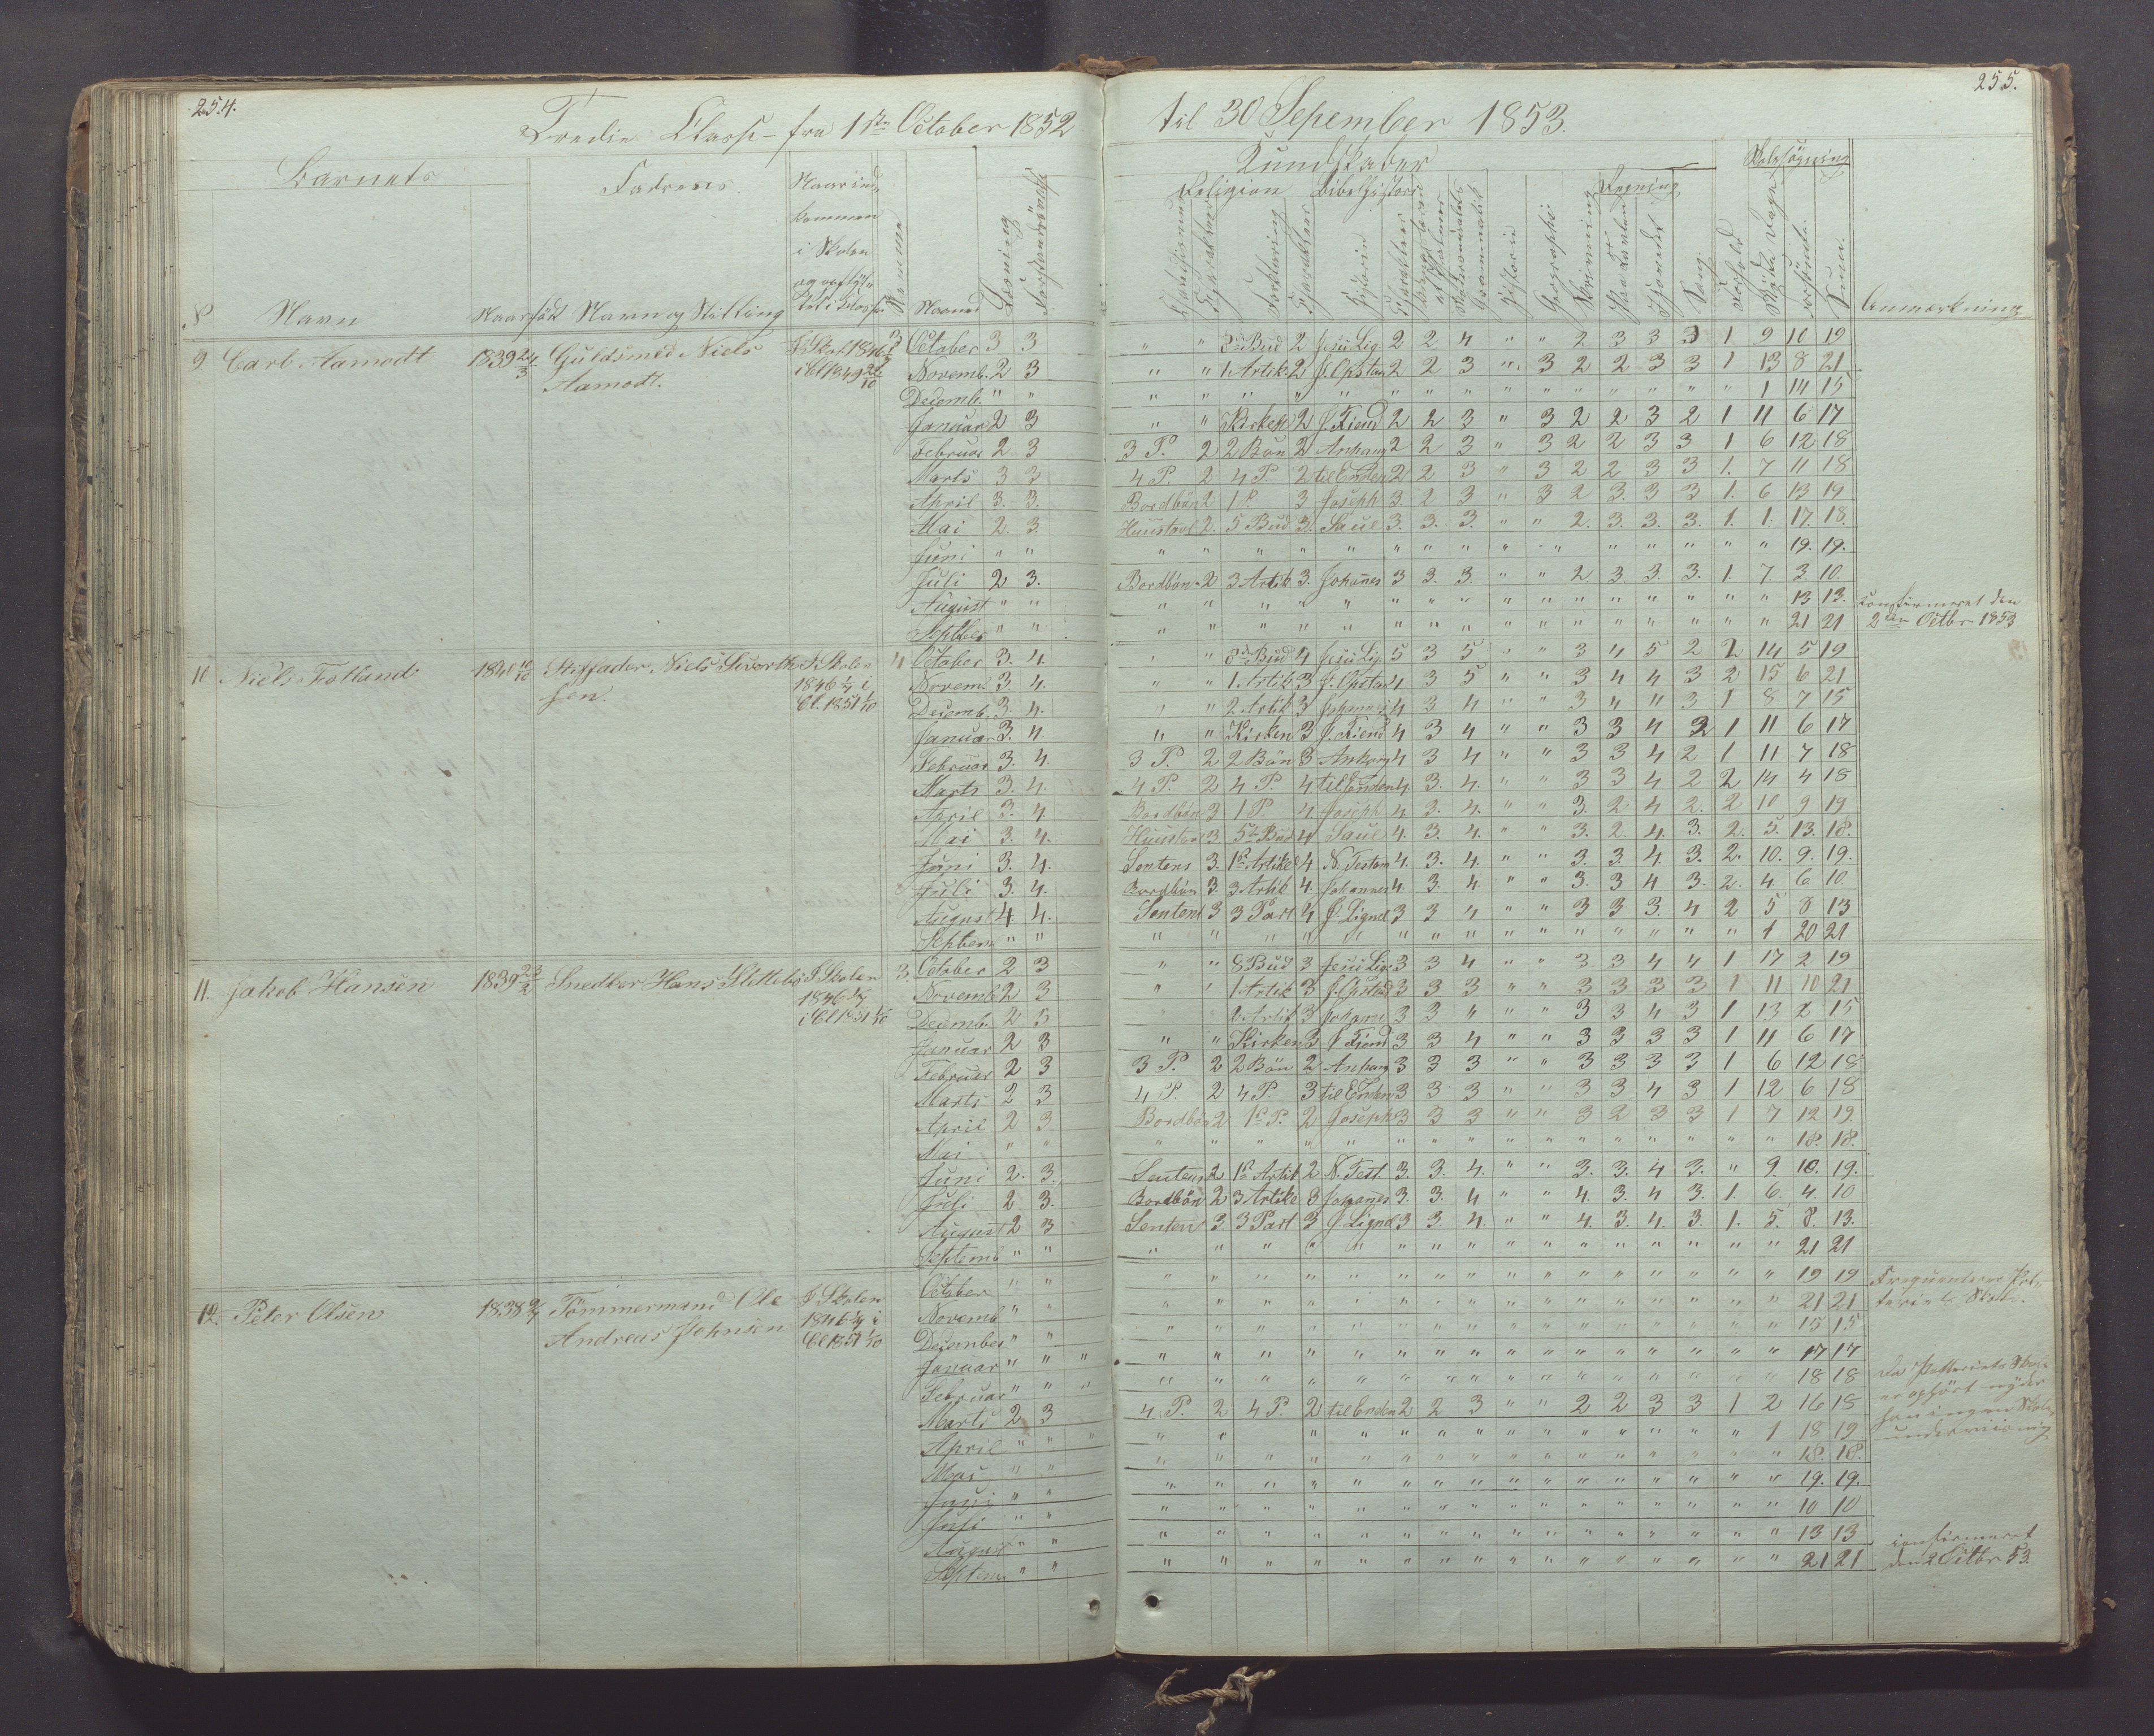 254.
255.
Tredie Classe - fra 1ste October 1852 til 30 Sepember 1853.
Barnets
Fadrens
Kundskaber
Skolesøgning
Religion Bibelhistorie
Regning
No Navn Naar født Navn og Stilling
Maaned
Læsning
Historie
Geographi
Skrivning
Sang
Forhold
Sum.
Anmærkning
9 Carl Aamodt 1839 24/3 Guldsmed Niels
Aamodt.
October 3 3 " " 8de Bud 2 Jesu Lig. 2 2 4 " " 2 3 3 3 1 9 10 19
Novemb. 2 3 " " 1 Artik. 2 J. Opstan 2 2 3 " 3 2 2 3 3 1 13 8 21
Decemb. " " " " " " " " " " " " " " " " " 1 14 15
Januar 2 3 " " Kirken 2 J. Fiend 2 2 3 " 3 2 2 3 2 1 11 6 17
Februar 2 3 3 P. 2 2 Bøn 2 Anhang 2 2 3 " 3 2 2 3 3 1 6 12 18
Marts 3 3 4 P. 2 4 P. 2 til Enden 2 2 3 " 3 2 2 3 3 1. 7 11 18
April 3. 3. Bordbøn 2 1 P. 3 Joseph 3. 2 3 " 3 2 3. 3 3 1. 6 13 19
Mai 2. 3. Huustavl 2. 5 Bud 3. Saul 3. 3. 3. " " 2. 3. 3. 3. 1. 1. 17. 18.
Juni " " " " " " " " " " " " " " " " " 19. 19.
Juli 2 3. Bordbøn 2 3 Artik 3. Johannes 3 3. 3. " " 2 3. 3. 3. 1. 7. 3. 10.
August " " " " " " " " " " " " " " " " " " 13 13.
Septbe " " " " " " " " " " " " " " " " " " 21 21
confirmeret den
2den Octbr 1853
10 Niels Fotland 1840 10/10 Stiffader Niels Sivert
sen.
I Skolen
1846 1/4 i
Cl. 1851 1/10
4
October 3. 4. " " 8de Bud 4 Jesu Lig. 5 3 5 " " 3 4 5 2 2 14 5 19
Novem. 3. 4. " " 1 Artik 3 J. Opstan 4 3 5 " " 3 4 4 3 2 15 6 21
Decemb. 3. 4. " " 2 Artik 3 4 3 4 " " 3 4 4 3 1 8 7 15
Januar 3. 4. " " Kirken 3 J. Fiend 4 3 4 " " 3 3 4 2 1 11 6 17
Februar 3. 4. 3 P. 2 2 Bøn 3 Anhang 4 3 4 " " 3 3 4 2 1 11 7 18
Marts 3. 4. 4 P. 2 4 P. 4 til Enden 4. 3. 4. " " 3 3 4 2 2 14 4 18
April 3. 4 Bordbøn 3 1 P. 4 Joseph 4. 3. 4. " " 3. 2 4 2. 2 10 9 19
Mai 3. 4. Huustav 3. 5te Bud 4 Saul 4. 3. 4. " " 3. 2. 4. 3. 2. 5. 13. 18.
Juni 3. 4. Sentens 3. 1ste Artikel 4 N. Testam 4. 3. 4. " " 3. 3. 4. 3. 2. 10. 9. 19.
Juli 3. 4. Bordbøn 3. 3 Artik 4. Johannes 4. 3. 4. " " 3. 3 4 3. 2. 4. 6. 10
August 4. 4. Sentens 3 3 Part 4 J. Lignel 3 3 4 " " 3 3 3. 4 2 5 8 13
Septem " " " " " " " " " " " " " " " " " 1 20 21
11. Jakob Hansen 1839 23/2 Snedker Hans Slettebø
I Skolen
1846 1/4
i Cl 1851 1/10
3.
October 2 3 " " 8 Bud 3 Jesu Lig. 3 3 4 " " 3 3 4 4 1 17 2 19
Novemb 2 3 " " 1 Artik 3 J. Opstad 3 3 3 " " 3 3 3 3 1 11 10 21
Decemb. 2 3 2 Artik 3 3 3 4 " " 3 3 4 3 1 13 2 15
Januar 2 3 " " Kirken 3 J. Fiend 3 3 4 " " 3 3 3 3 1 11 6 17
Februar 2 3 3 P. 2 2 Bøn 2 Anhang 3 3 3 " " 3 3 3 3 1 6 12 18
Marts 2 3 4 P. 2 4 P. 3 til Enden 3 3 3 " " 3 3 4 3 1 12 6 18
April 2 3 Bordbøn 2 1ste P. 2 Joseph 3 3 3 " " 3 2 3 3 1 7 12 19.
Mai " " " " " " " " " " " " " " " " " " 18. 18.
Juni 2. 3. Sentens 2 1ste Artik 2 N. Test. 3. 3. 4. " " 3. 3. 4 3. " 9. 10. 19.
Juli 2 3. Bordbøn 2 3 Artike 3 Johanes 3. 3. 4 " " 4. 3. 4 3. 1. 6. 4. 10
August 2 3 Sentens 3 3 Part 3 J. Lignel 3 3 4. " " 4. 3. 4. 3. 1. 5. 8. 13.
Septemb " " " " " " " " " " " " " " " " " " 21 21
12. Peter Olsen 1838 9/7 Tømmermand Ole
Andreas Johnsen
I Skolen
1846 1/4 i
Cl 1851 1/10
October " " " " " " " " " " " " " " " " " " 19 19
Novemb. " " " " " " " " " " " " " " " " " " 21 21
December " " " " " " " " " " " " " " " " " " 15 15
Januar " " " " " " " " " " " " " " " " " " " 17 17
Februar " " " " " " " " " " " " " " " " " " " 18 18
Marts 2 3 4 P. 2 4 P. 2 til Enden 2 2 3 " " 2 2 3 3 1 2 16 18
April " " " " " " " " " " " " " " " " " 1 18 19
Mai " " " " " " " " " " " " " " " " " " 18. 18.
Juni " " " " " " " " " " " " " " " " " " 19. 19.
Juli " " " " " " " " " " " " " " " " " " 10 10
August " " " " " " " " " " " " " " " " " " 13 13
Septem. " " " " " " " " " " " " " " " " " " 21 21
confirmeret
den 2 Octbr 53.